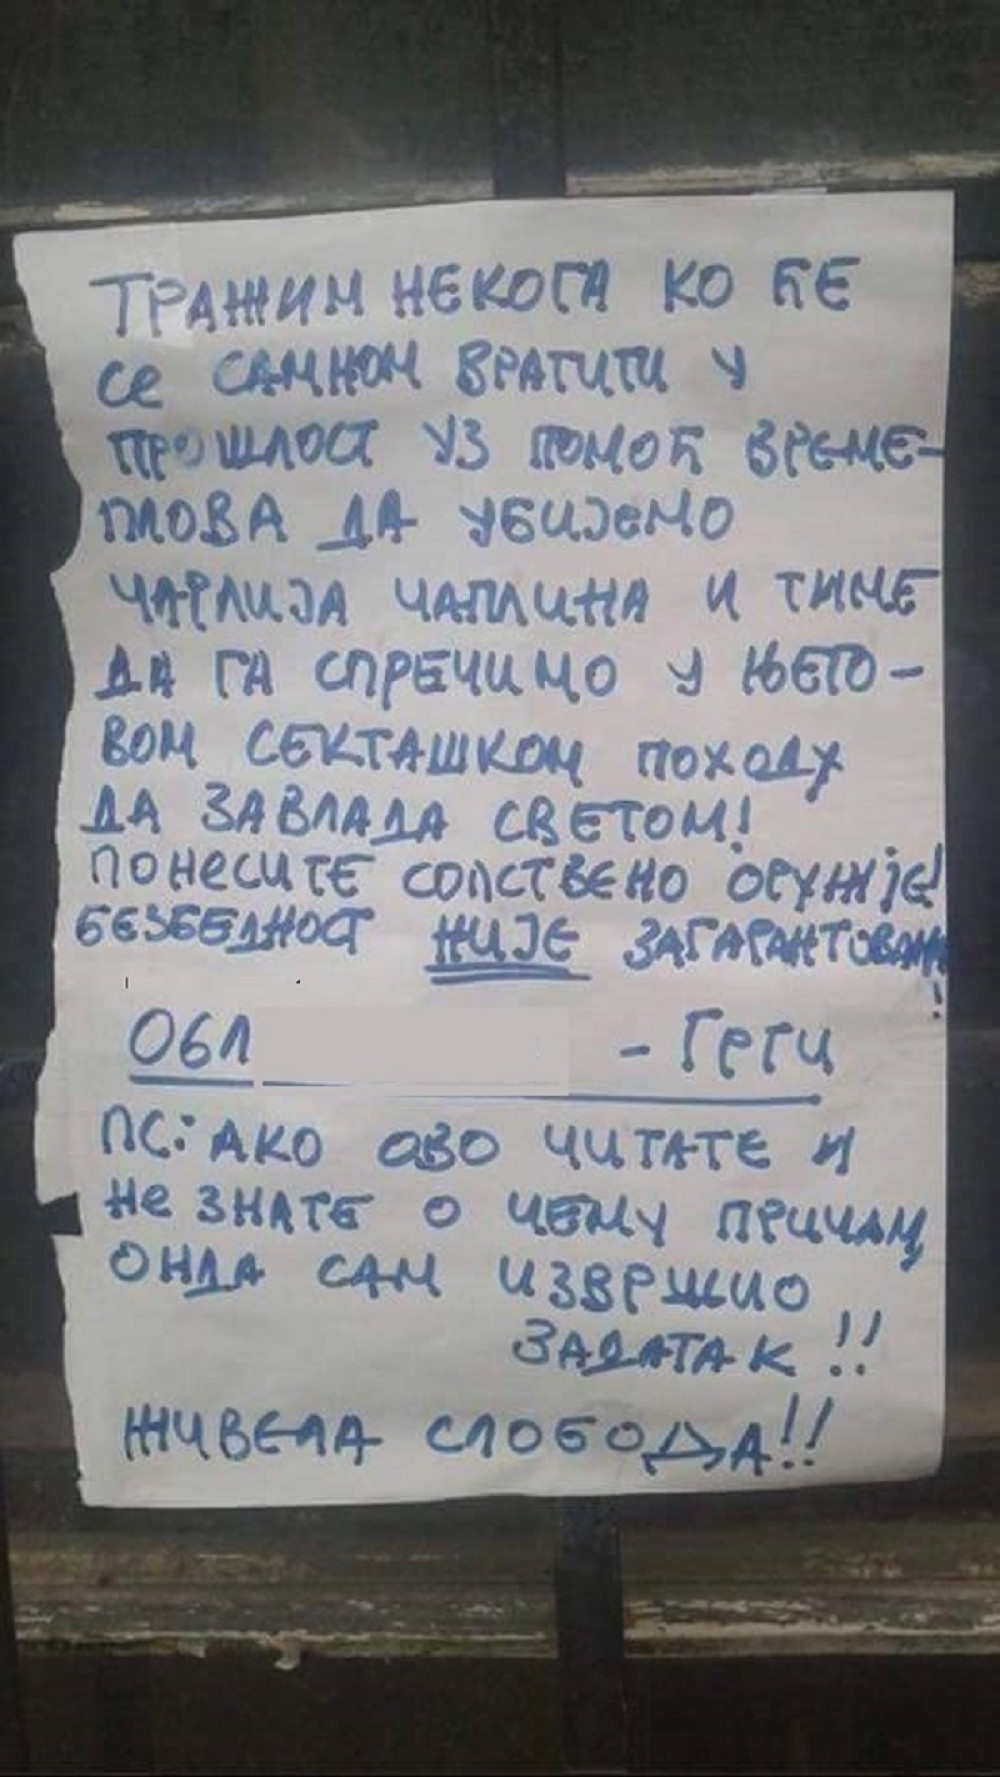 ТРАЖИМ НЕКОГА КО ЋЕ
СЕ САМНОМ ВРАТИТИ У
ПРОШЛОСТ УЗ ПОМОЋ ВРЕМЕ-
ПЛОВА ДА УБИЈЕМО
ЧАРЛИЈА ЧАПЛИНА И ТИМЕ
ДА ГА СПРЕЧИМО У ЊЕГО-
ВОМ СЕКТАШКОМ ПОХОДУ
ДА ЗАВЛАДА СВЕТОМ!
ПОНЕСИТЕ СОПСТВЕНО ОРУЖЈЕ!
БЕЗБЕДНОСТ НИЈЕ ЗАГАРАНТОВАНА
!
061 - Грги
ПС: АКО ОВО ЧИТАТЕ И
НЕ ЗНАТЕ О ЧЕМУ ПРИЧАМ,
ОНДА САМ ИЗВРШИО
ЗАДАТАК!!
ЖИВЕЛА СЛОБОДА!!